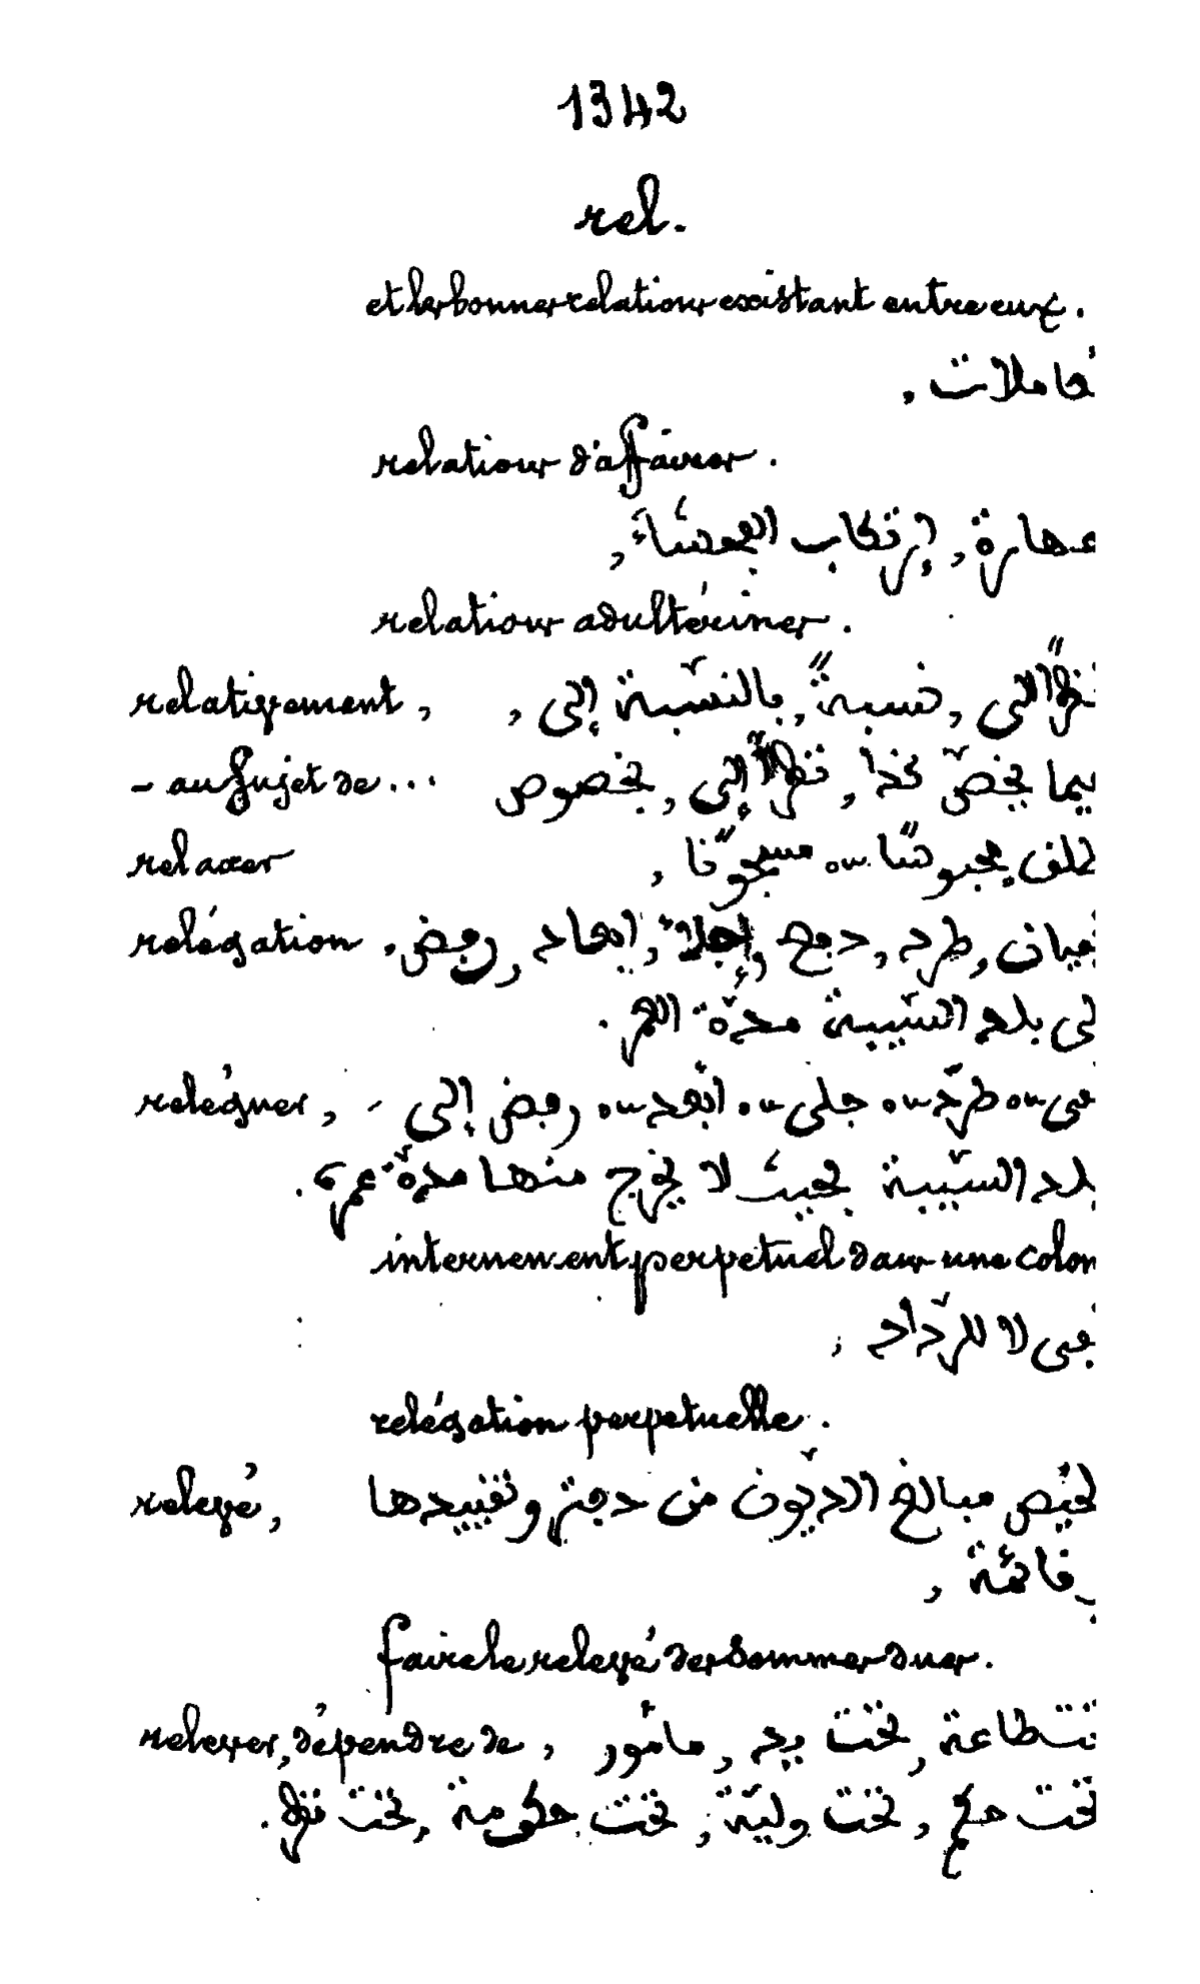 1342
rel.
et les bonnes relations existant entre eux.
معاملات,
relations d'affaires.
عهارة, إرتكاب الفوحشاء,
relations adultérines.
relativement, نظرًا الى, نسبةً, بالنسّبة إلى,
- au sujet de... فيما يخصّ كذا, نظرًا إلى, بخصوص
relaxer محبوسًا — مسجونًا,
relégation نفيان, طرد, دفع, إجلاء, ابعاد, رفض.
الى بلد السّيبة مدّة العمر.
reléguer, نفى — طرّد — جلى — ابعد — رفض إلى -
بلد السّيبة بحيث لا يخرج منها مدّة عمره.
internement perpétuel dans une colon
نفى لا للردّاد,
relégation perpetuelle.
relevé, تلخيص مبالغ الديّون من دفتر وتقييدها
في قائمة,
faire le relevé des sommes dues.
relever, dépendre de, تحت طاعة, تحت يد, مأمور
تحت حكم, تحت وليّة, تحت حكومة, تحت نظر.